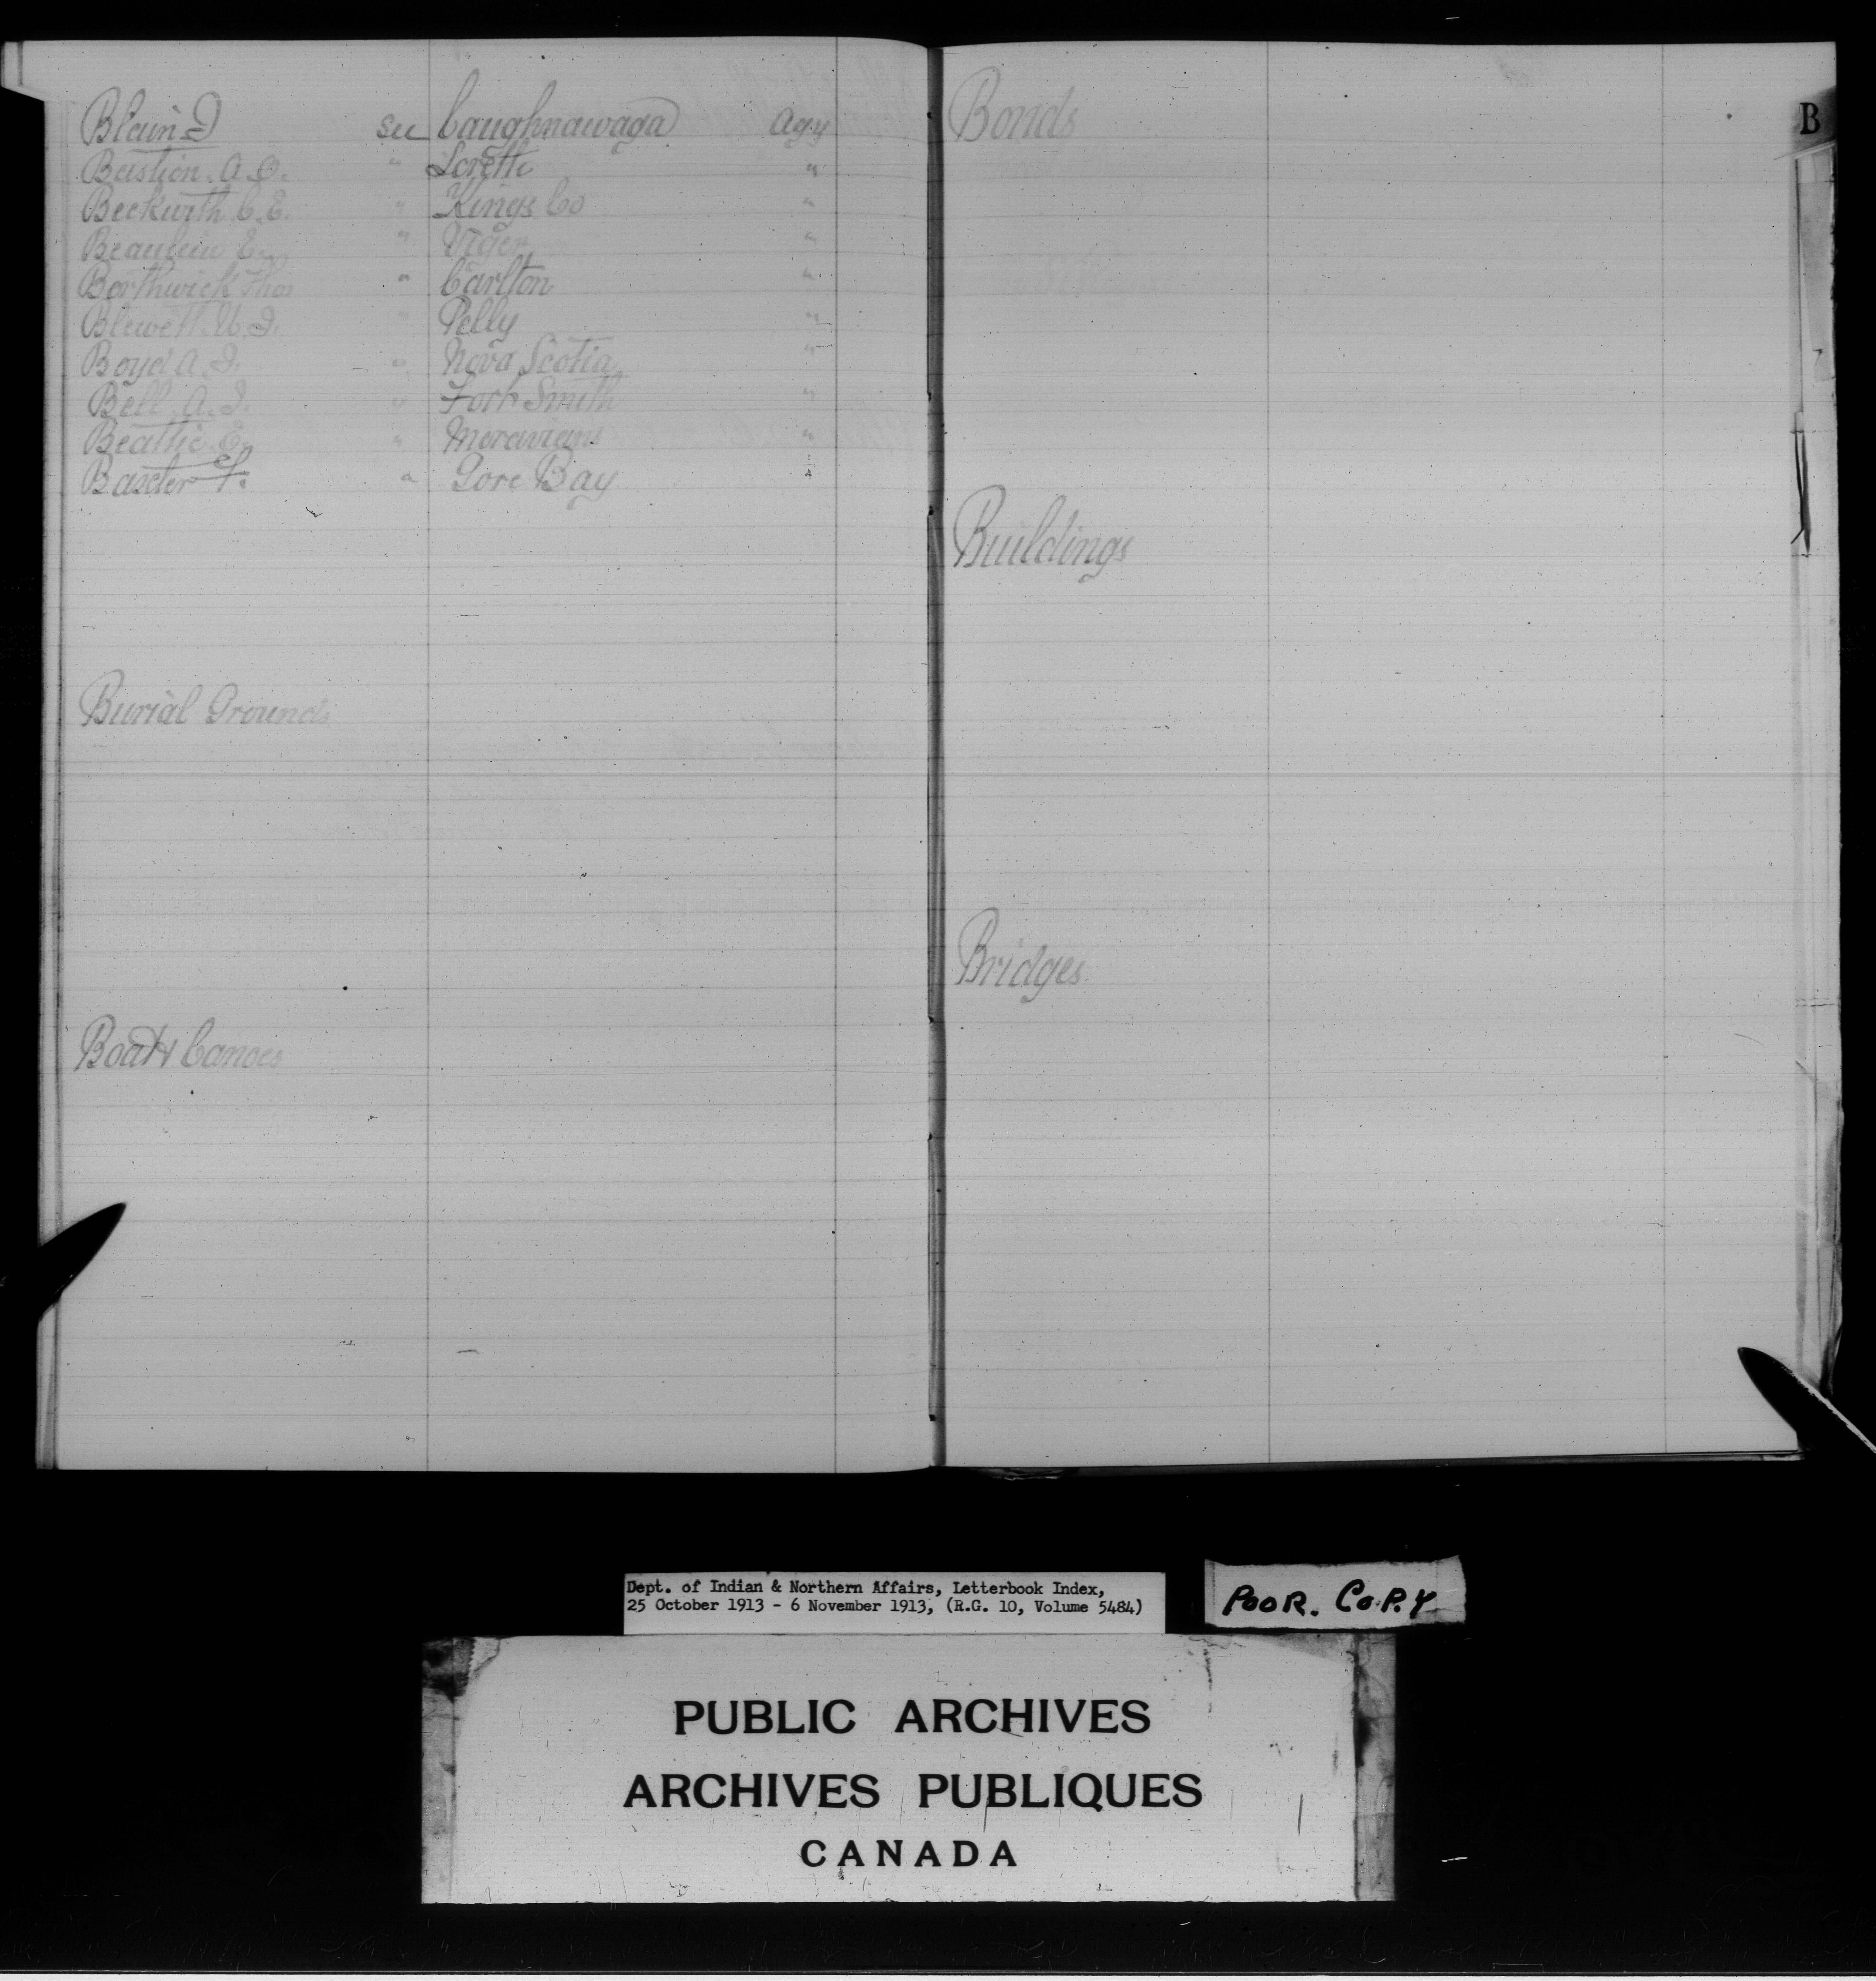 Blain J see Caughnawaga Agy
Bastien. A. O. " Lorette "
Beckwith C. E. " Kings Co "
Beaulieu E. " Viger "
Borthwick Thos " Carlton "
Blewett. W. J. " Pelly "
Boyd A. J. " Nova Scotia "
Bell. A. J. " Fort Smith "
Beattie E. " Moravians "
Baxter " Gore Bay "
Burial Grounds
Boats Canoes
Bonds
B
Buildings
Bridges
Dept. of Indian & Northern Affairs, Letterbook Index,
25 October 1913 - 6 November 1913, (R.G. 10, Volume 5484)
POOR. COPY
PUBLIC ARCHIVES
ARCHIVES PUBLIQUES
CANADA